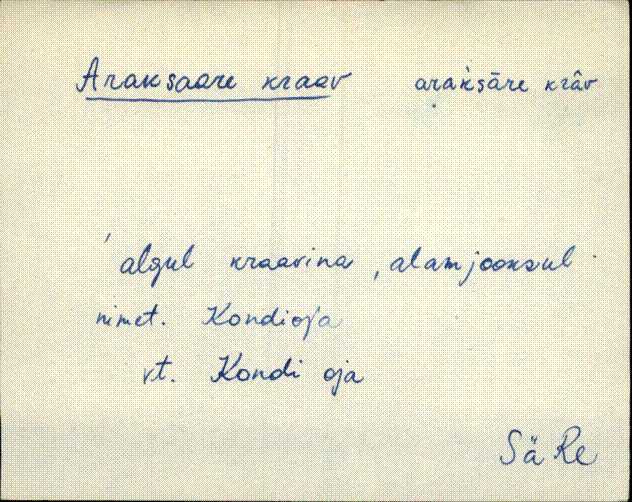 Araksaare kraav araksāre krâv
algul kraavina, alamjooksul
nimet. Kondioja
vt. Kondi oja
Sä Re